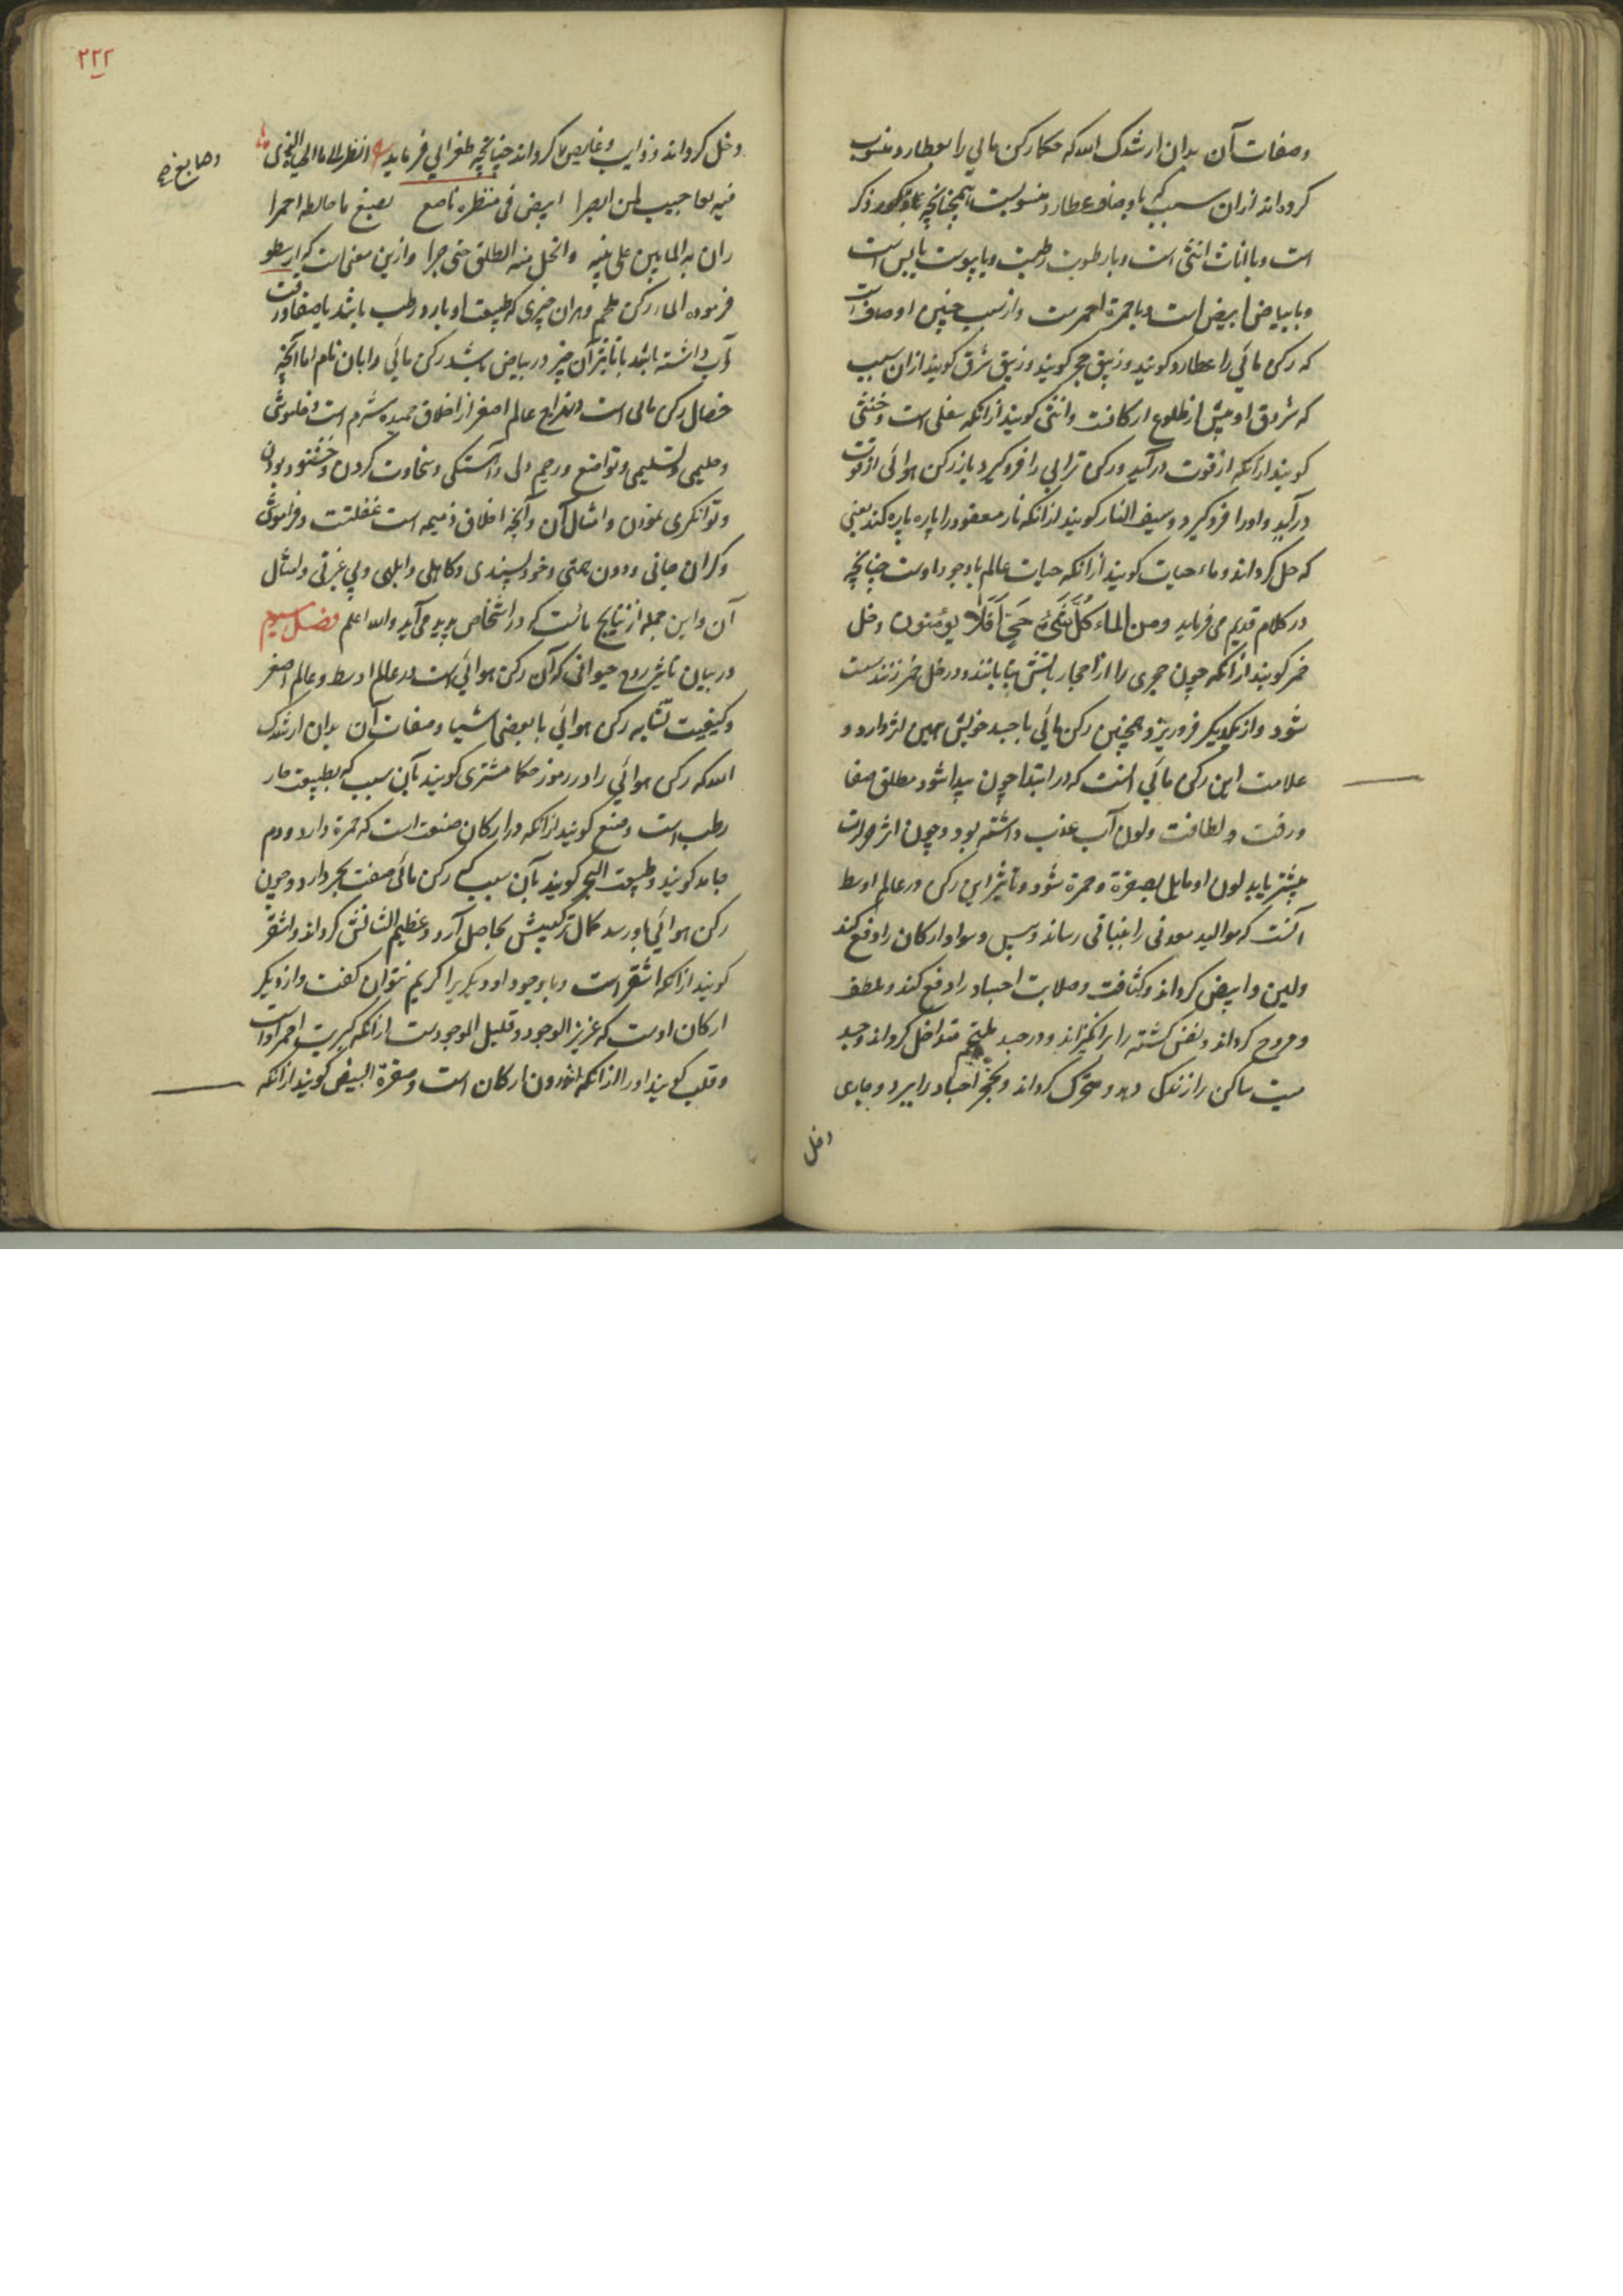 وصفات آن بدان ارشدک الله که حکما رکن مائی را بعطارد منسوب
کرده‌اند ازان سبب که باوصاف عطارد منسوبست همچنانچه با مذکور ذکر
است و با اناث انثی است و با رطوبت رطبست و با یبوست یابس است
و با بیاض ابیض است و با حمرة احمرست و از سبب چنین اوصاف است
که رکن مائی را عطارد کویند و زیبق حجر کویند و زیبق شرق کویند ازان سبب
که شروق او پیش از طلوع ارکانست و انثی کویند ازانکه سفلی است و خنثی
کویند ازانکه از قوت درآید و رکن ترابی را فروکیرد باز رکن هوائی از قوت
درآید و اورا فروکیرد و سیف النار کویند ازانکه نار معقود را پاره پاره کند یعنی
که حل کرداند و ماء حیات کویند ازانکه حیات عالم باوجود اوست چنانچه
در کلام قدیم می فرماید ومن الماء کُلَّ شَیْءٍ حَیٍّ اَفَلَا یؤمنون وخل
خمر کویند ازانکه چون حجری را از احجار بآتش بتابانند و در خل خمر زنند سست
شود و از یکدیکر فروریزد همچنین رکن مائی با جسد خویش همین اثر دارد و
علامت این رکن مائی آنست که در ابتدا چون پیدا شود مطلق صفا
ورقت و لطافت ولون آب عذب داشته بود و چون اثر حرارت
بیشتر یابد لون او مایل بصفرة و حمرة شود و تاثیر این رکن در عالم اوسط
آنست که موالید معدنی را بنباتی رساند و سیل وسواد ارکان را دفع کند
ولین وابیض کرداند و کثافت و صلابت اجساد را دفع کند و ملطف
و مروح کرداند و نفس کشته را برانکیزاند و در جسد ملتحم متداخل کرداند و جسد
میت ساکن را زندکی دهد و متحرک کرداند و بخر اجساد را ببرد و جاری
دخل
۲۲۲
دخل کرداند و ذوایب و غایص کرداند چنانچه طغرائی فرماید انظر الی ما الحی
وصابغ صح
فیه لعاجیب لمن ابصرا ابیض فی منظره ناصع یصبغ ما خالطه احمرا
وان به المابین علی متنه وانحل منه الطلق حتی جرا وازین معنی است که ارسطو
فرموده الماء رکن عظم و بدان چیزی که طبیعت او بارد و رطب باشد یا صفا و رقت
آب داشته باشد با تاثیر آن چیز در بیاض باشد رکن مائی دانان نام اما آنچه
خصال رکن مائی است در انواع عالم اصغر از اخلاق حمیده شرم است و خاموشی
و حلیمی و تسلیمی و تواضع و رحیم دلی و آهستکی و سخاوت کردن و خشنود بودن
و توانکری نمودن و امثال آن و آنچه اخلاق ذمیمه است غفلتست و فراموشی
و کران جانی و دون همتی و خودپسندی و کاهلی و ابلهی و بی عزتی و امثال
آن و این جمله از نتایج مائست که در اشخاص پدید می آید والله اعلم فصل سیوم
در بیان تاثیر روح حیوانی که آن رکن هوائی است در عالم اوسط و عالم اصغر
و کیفیت تشابه رکن هوائی با بعضی اشیا و صفات آن بدان ارشدک
الله که رکن هوائی را در رموز حکما مشتری کویند بآن سبب که بطبیعت حار
رطب است و صبغ کویند ازانکه در ارکان صنعت است که حمرة دارد و دم
جامد کویند و طبیعت البحر کویند بآن سبب که رکن مائی صفت بحر دارد و چون
رکن هوائی باو رسد کمال ترکیبش بحاصل آرد و عظیم الشانش کرداند و اشقر
کویند ازانکه اشقر است و با وجود او دیکری را کریم نتوان کفت و از دیکر
ارکان اوست که عزیز الوجود و قلیل الموجودست ازانکه کبریت احمر اوست
و قلب کویند اورا ازانکه اندرون ارکان است و صفرة البیض کویند ازانکه